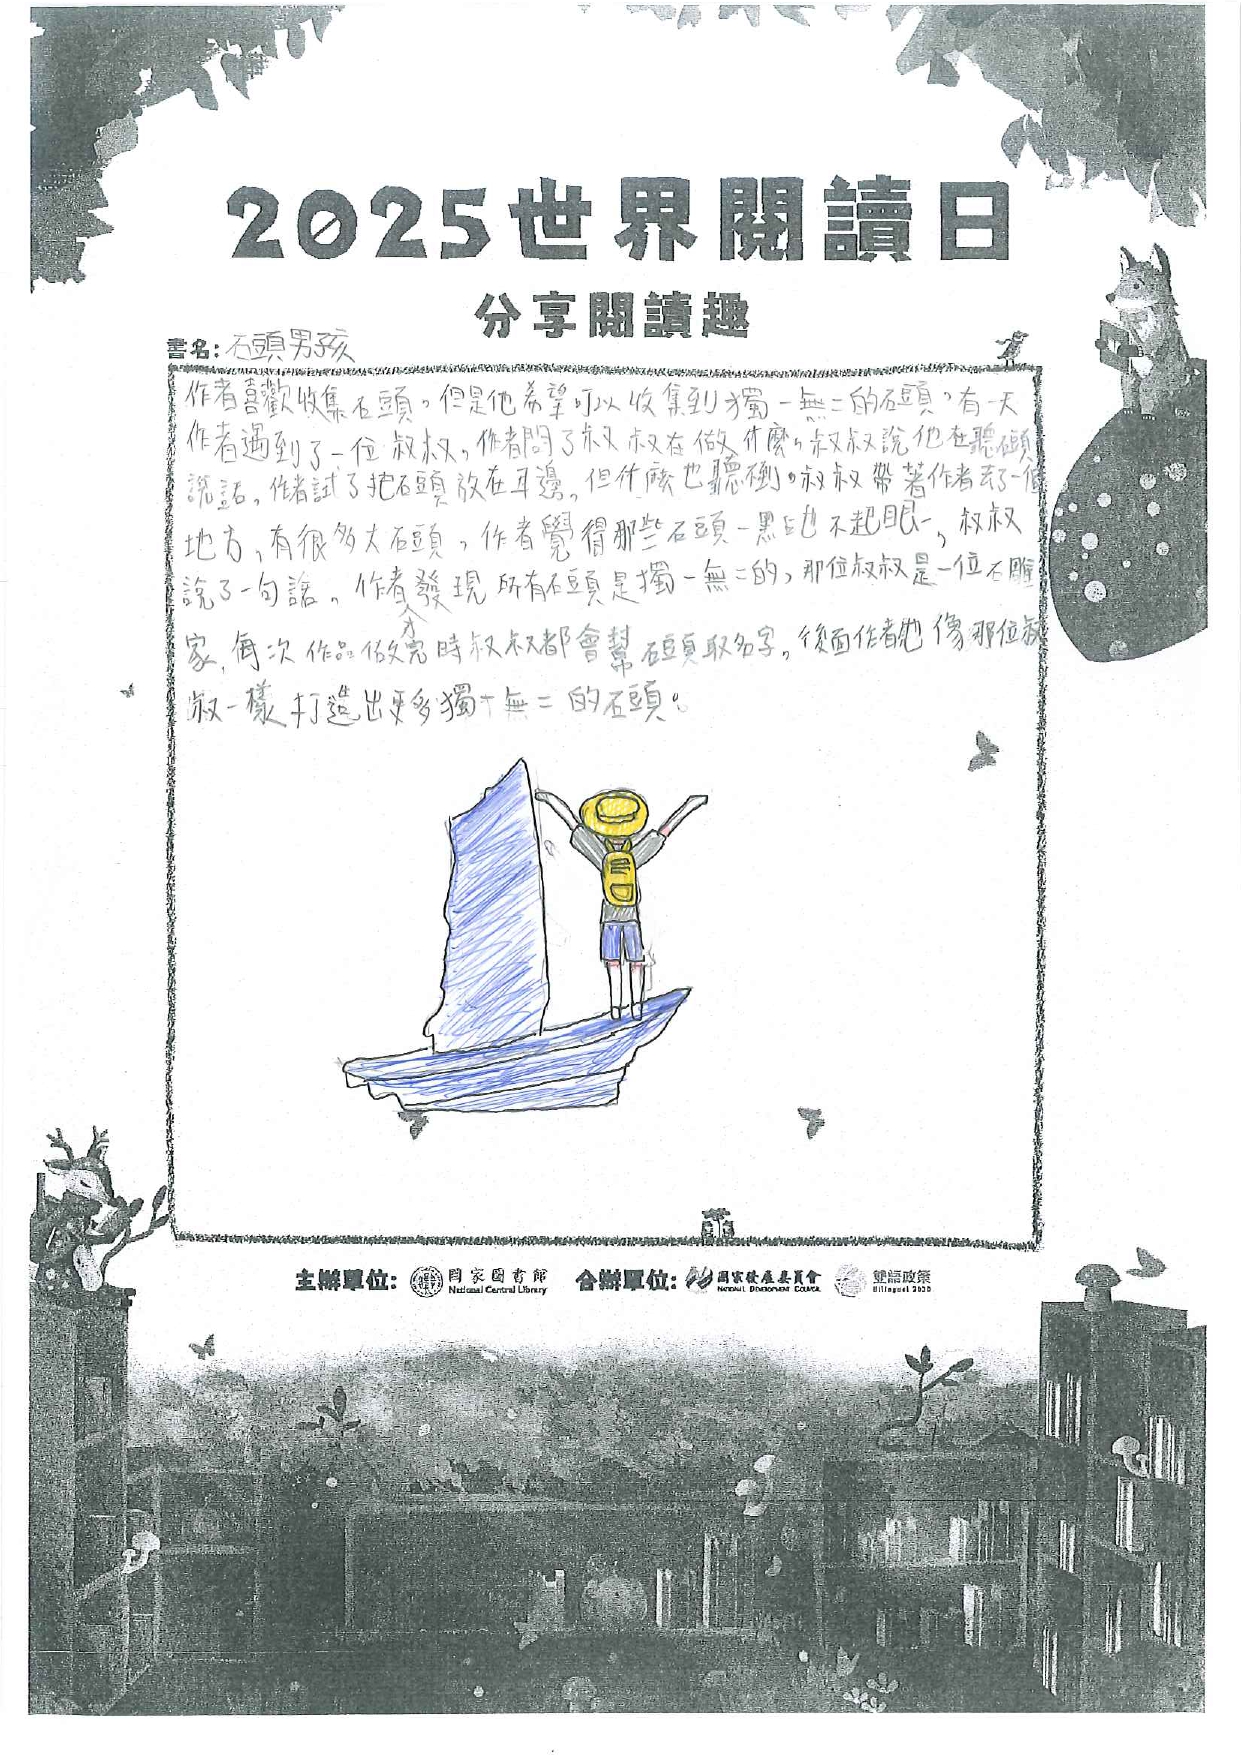 2025世界閱讀日
分享閱讀趣
書名:石頭男孩
作者喜歡收集石頭。但是他希望可以收集到獨一無二的石頭。有一天
作者遇到了一位叔叔。作者問了叔叔在做什麼。叔叔說他在聽石頭
說話。作者試了把石頭放在耳邊。但什麼也聽倒。叔叔帶著作者去了一個
地方,有很多大石頭。作者覺得那些石頭一點也不起眼,叔叔
說了一句話。作者發現所有石頭是獨一無二的,那位叔叔是一位石雕
家,每次作品做完時叔叔都會幫石頭取名字。後面作者也像那位叔
叔一樣打造出更多獨一無二的石頭。
主辦單位: 國家圖書館 合辦單位: 國家發展委員會 雙語政策
National Central Library NATIONAL DEVELOPMENT COUNCIL Bilingual 2030